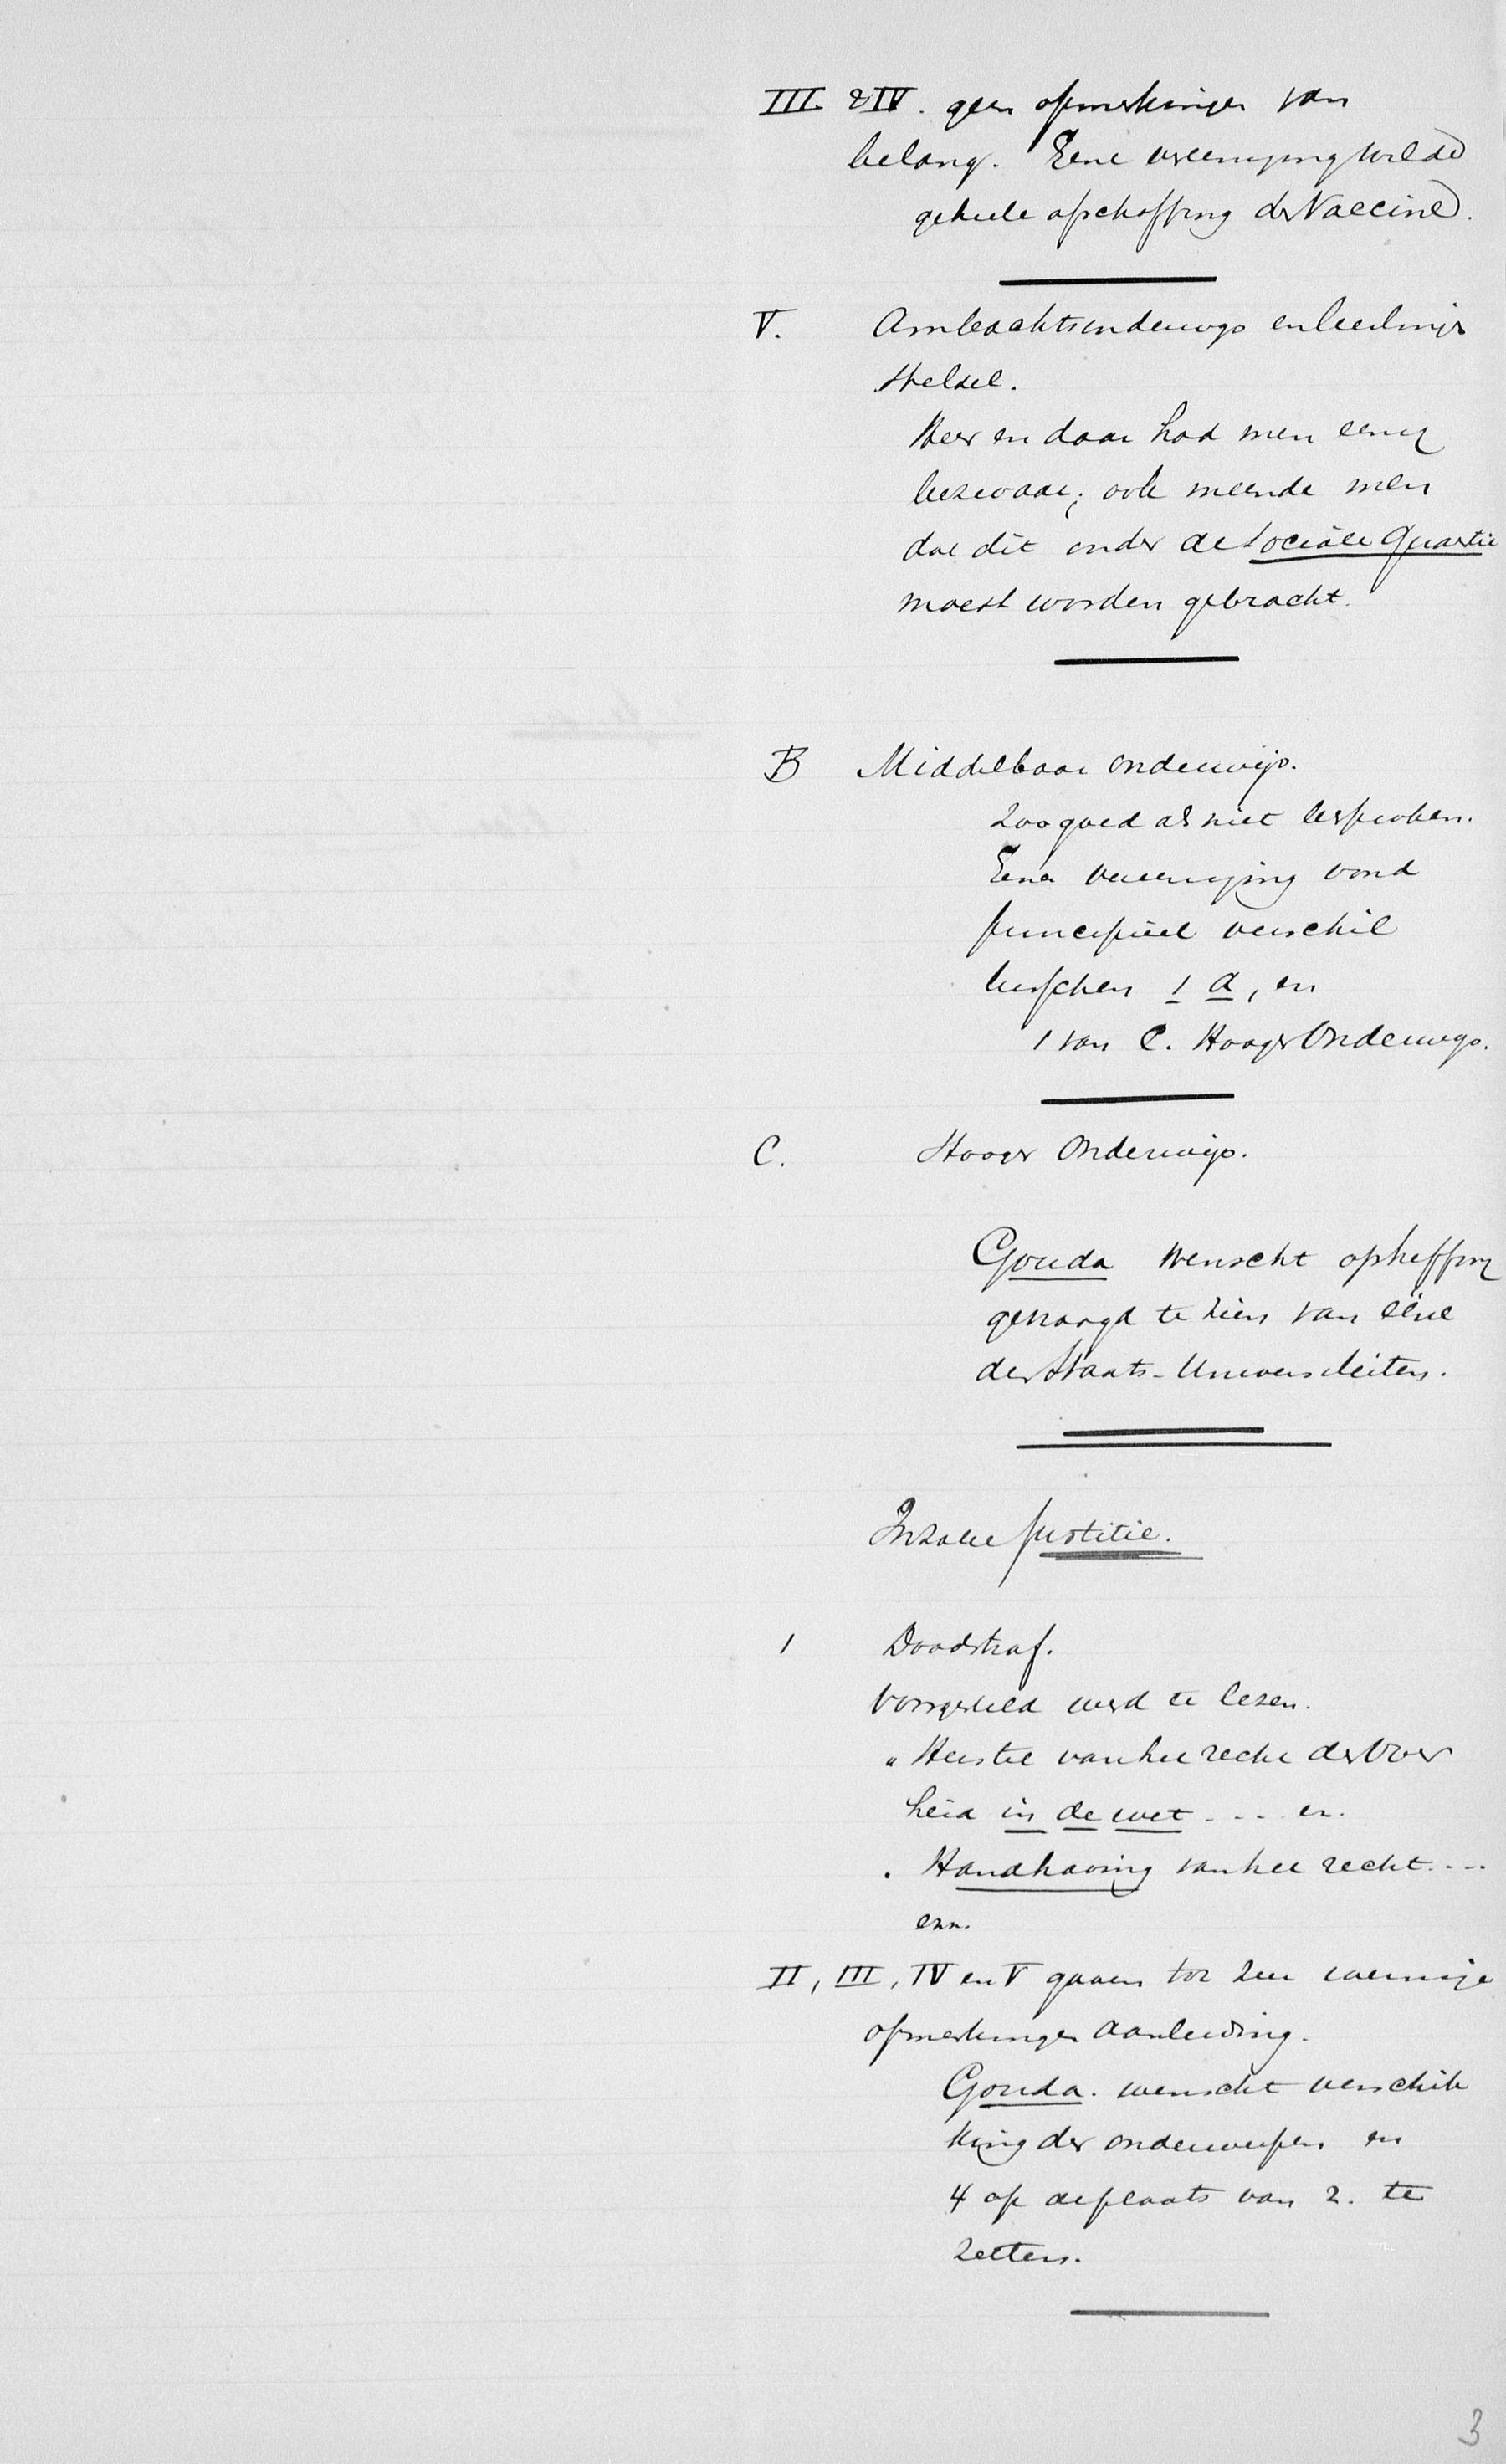 III & IV. geen opmerkingen van
belang. Eene vereeniging wilde
geheele afschaffing der Vaccine.
V. Ambachtsonderwijs en leerling
stelsel.
Heer en daar had men eenig
bezwaar; ook meende men
dat dit onder de Sociale Quaestie
moest worden gebracht.
B Middelbaar onderwijs.
Zoo goed als niet besproken.
Eene vereeniging vond
principieel verschil
tusschen 1 a, en
1 van C. Hooger Onderwijs.
C. Hooger Onderwijs.
Gouda wenscht opheffing
gevraagd te zien van ééne
der Staats-Universiteiten.
Inzake Justitie.
1 Doodstraf.
Voorgesteld werd te lezen.
" Herstel van het recht der Over
heid in de wet - - - en.
" Handhaving van het recht. - - -
enz.
II, III, IV en V gaven tot zeer weinige
opmerkingen aanleiding.
Gouda. wenscht verschik
king der onderwerpen en
4 op de plaats van 2. te
zetten.
3